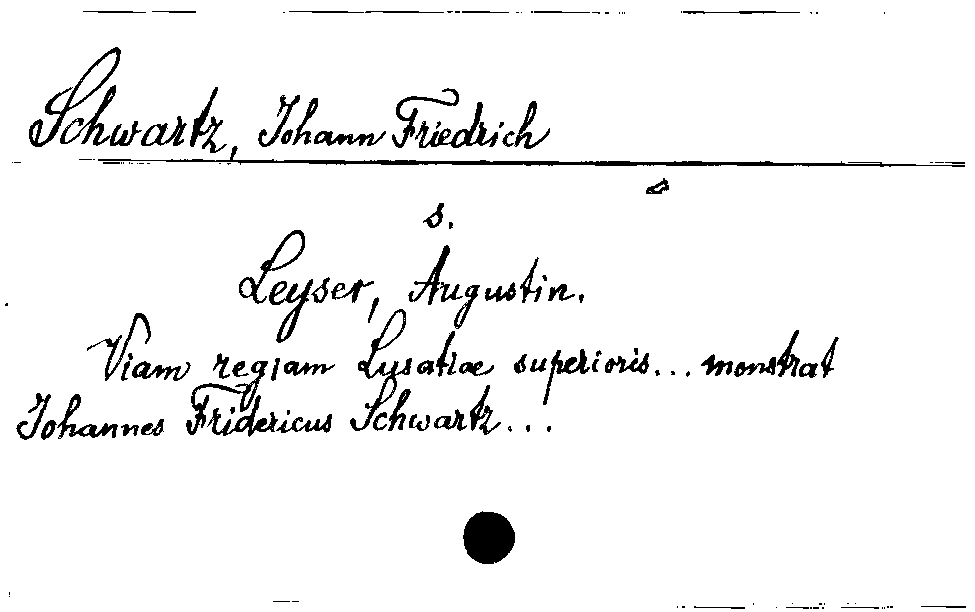 Schwartz, Johann Friedrich
s.
Leyser, Augustin.
Viam regiam Lusatiae superioris... monstrat
Johannes Fridericus Schwartz...